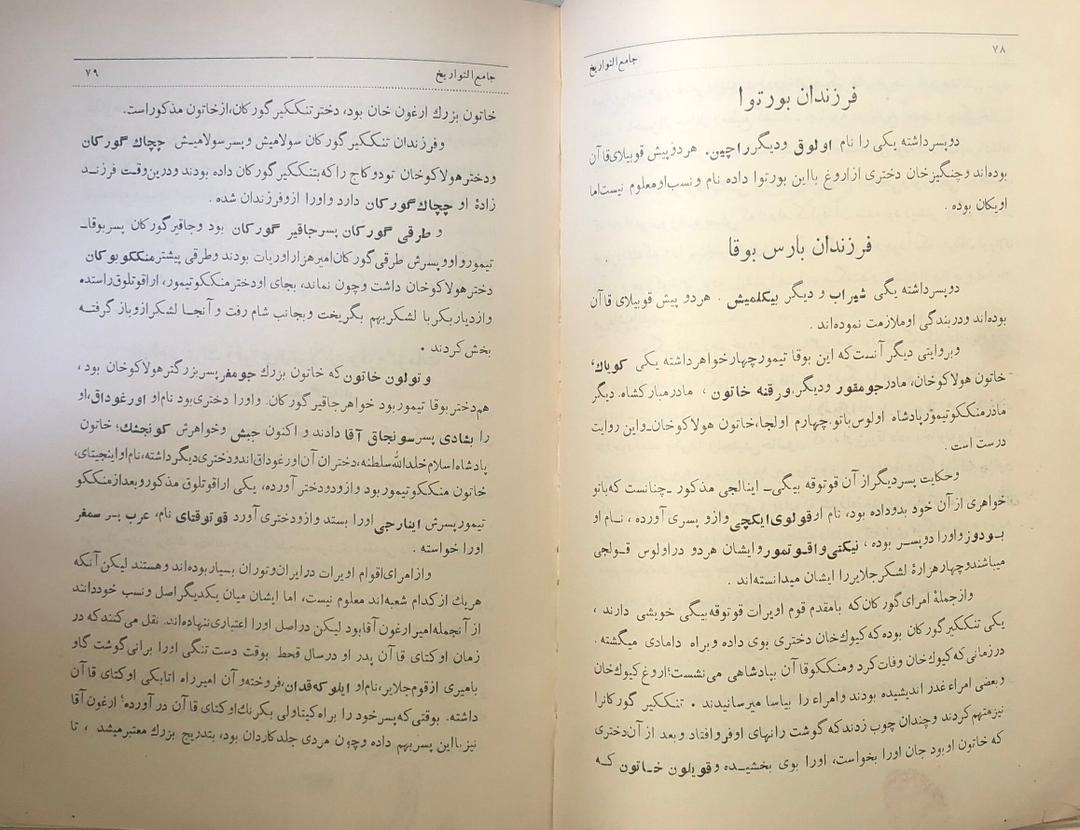 ۷۸
جامع التواریخ
فرزندان بورتوا
دوپسرداشته یکی را نام اولوق ودیگرراچین. هردوپیش قوبیلای قاآن
بوده‌اند وچنگیزخان دختری ازاروغ بااین بورتوا داده نام ونسب‌اومعلوم نیست‌اما
اویکان بوده .
فرزندان بارس بوقا
دوپسرداشته یگی شیراب و دیگر بیکلمیش . هردو پیش قوبیلای قاآن
بوده‌اند ودربندگی اوملازمت نموده‌اند .
وبروایتی دیگر آنست‌که این بوقا تیمورچهارخواهرداشته یکی کوپاك،
خاتون هولاکوخان، مادرجومقور ودیگر،ورقنه خاتون ، مادرمبارکشاه. دیگر
مادرمنککوتیمورپادشاه اولوس‌باتو.چهارم اولجا،خاتون هولاکوخان_واین روایت
درست است .
وحکایت پسردیگراز آن قوتوقه بیگی_ اینالجی مذکور _چنانست که‌باتو
خواهری ازآن خود بدوداده بود، نام اوقولوی‌ایکچی وازو پسری آورده ، نام او
بودوز واورا دوپسر بوده ، نیکتی‌واقوتمور وایشان هردو دراولوس قولجی
میباشندوچهارهزارهٔ لشکرجلایررا ایشان میدانسته‌اند .
وازجملهٔ امرای گورکان‌که بامقدم قوم اویرات قوتوقه‌بیگی خویشی دارند ،
یکی تنککیرگورکان بوده‌که کیوك‌خان دختری بوی داده وبراه دامادی میگشته .
درزمانی که‌کیوك‌خان وفات‌کرد ومنککوقاآن بپادشاهی می‌نشست؛اروغ کیوك‌خان
وبعضی امراء غدر اندیشیده بودند وامراء را بیاسا میرسانیدند . تنککیر گورکانرا
نیزمتهم‌کردند وچندان چوب زدندکه گوشت رانهای اوفروافتاد وبعد ازآن‌دختری
که خاتون اوبود جان اورا بخواست، اورا بوی بخشیده وقویلون خاتون که
۷۹
جامع التواریخ
خاتون بزرك ارغون خان بود، دخترتنککیرگورکان،ازخاتون مذکوراست.
وفرزندان تنککیرگورکان سولامیش وپسرسولامیش چچاك گورکان
ودخترهولاکوخان تودوکاج راکه‌بتنککیرگورکان داده بودند ودرین‌وقت فرزند
زادهٔ او چچاك‌گورکان دارد واورا ازوفرزندان شده .
و طرقی گورکان پسرجاقیر گورکان بود وجاقیرگورکان پسربوقا_
تیموروا ووپسرش طرقی گورکان‌امیرهزاراوریات بودند وطرقی پیشترمنککوبوکان
دخترهولاکوخان داشت وچون نماند، بجای اودخترمنککوتیمور، اراقوتلوق‌راستده
وازدیاربکر با لشکربهم بگریخت وبجانب شام رفت و آنجا لشکرازوباز گرفته
بخش‌کردند .
وتولون خاتون‌که خاتون بزرك جومغر پسربزرگترهولاکوخان بود ،
هم‌دختربوقا تیموربود خواهرجاقیرگورکان. واورا دختری‌بود نام‌او اورغوداق،او
را بشادی پسرسونجاق آقا دادند و اکنون جیش وخواهرش کونجشك؛ خاتون
پادشاه‌اسلام خلدالله سلطنه، دختران آن‌اورغوداق‌اندودختری دیگرداشته،نام‌اواینجیتای،
خاتون منککوتیموربود وازودودختر آورده، یکی اراقوتلوق مذکوروبعدازمنککو
تیمورپسرش اینارجی‌اورا بستد وازودختری‌آورد قوتوقتای نام، عرب پسر سمغر
اورا خواسته .
وازامرای‌اقوام اویرات درایران‌وتوران بسیاربوده‌اند وهستند لیکن آنکه
هریك ازکدام شعبه‌اند معلوم نیست، اما ایشان میان یکدیگراصل ونسب خوددانند
از آنجمله‌امیرارغون آقابود لیکن دراصل اورا اعتباری‌ننهاده‌اند. نقل می‌کنندکه در
زمان اوکتای قاآن پدر او درسال قحط بوقت دست تنگی اورا برانی‌گوشت گاو
بامیری ازقوم‌جلایر،نام‌او ایلوکه‌قدان،فروخته‌وآن امیرراه اتابکی اوکتای قاآن
داشته. بوقتی‌که‌پسرخود را براه‌کیتاولی بکزیك‌اوکتای قاآن در آورده؛ ارغون آقا
نیزبااین پسربهم داده وچون مردی جلدکاردان بود، بتدریج بزرك معتبرمیشد ، تا